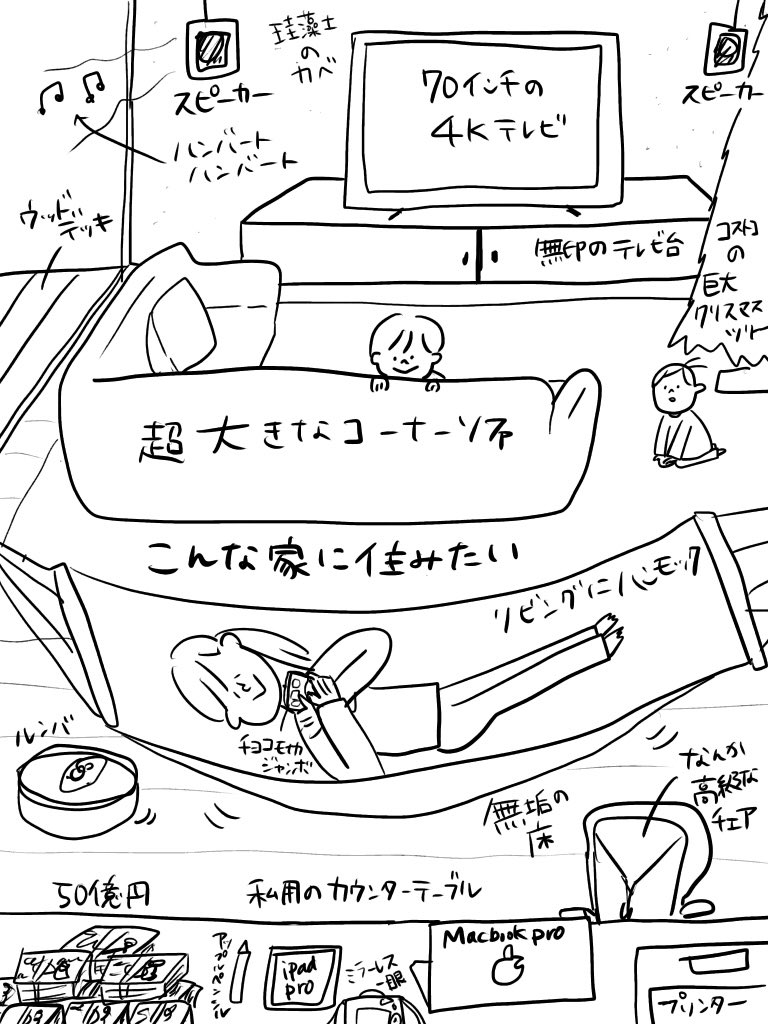 珪藻土
の
カベ
スピーカー
70インチの
4Kテレビ
スピーカー
ハンバート
ハンバート
ウッド
デッキ
無印のテレビ台
コストコ
の
巨大
クリスマス
ツリー
超大きなコーナーソファ
こんな家に住みたい
リビングにハンモック
チョコモナカ
ジャンボ
ルンバ
なんか
高級な
チェア
無垢の
床
50億円
私用のカウンターテーブル
アップルペンシル
iPad
pro
ミラーレス
一眼
Macbook pro
プリンター